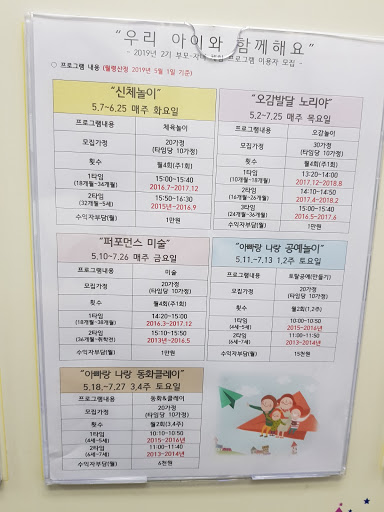 “우리 아이와 함께해요”
- 2019년 2기 부모-자녀 프로그램 이용자 모집 -
○ 프로그램 내용 (월령산정 2019년 5월 1일 기준)
“신체놀이”
5.7~6.25 매주 화요일
프로그램내용 체육놀이
모집가정 20가정
(타임당 10가정)
횟수 월4회(주1회)
1타임 15:00~15:40
(18개월~34개월) 2016.7~2017.12
2타임 15:50~16:30
(32개월~5세) 2015년~2016.9
수익자부담(월) 1만원
“오감발달 노리야”
5.2~7.25 매주 목요일
프로그램내용 오감놀이
모집가정 30가정
(타임당 10가정)
횟수 월4회(주1회)
1타임 13:20~14:00
(10개월~18개월) 2017.12~2018.8
2타임 14:10~14:50
(16개월~26개월) 2017.4~2018.2
3타임 15:00~15:40
(24개월~36개월) 2016.5~2017.6
수익자부담(월) 1만원
“퍼포먼스 미술”
5.10~7.26 매주 금요일
프로그램내용 미술
모집가정 20가정
(타임당 10가정)
횟수 월4회(주1회)
1타임 14:20~15:00
(18개월~38개월) 2016.3~2017.12
2타임 15:10~15:50
(36개월~취학전) 2013년~2016.5
수익자부담(월) 1만원
“아빠랑 나랑 공예놀이”
5.11,~7.13 1,2주 토요일
프로그램내용 토탈공예(만들기)
모집가정 20가정
(타임당 10가정)
횟수 월2회(1,2주)
1타임 10:00~10:50
(4세~5세) 2015~2016년
2타임 11:00~11:50
(6세~7세) 2013~2014년
수익자부담(월) 15천원
“아빠랑 나랑 동화클레이”
5.18,~7.27 3,4주 토요일
프로그램내용 동화&클레이
모집가정 20가정
(타임당 10가정)
횟수 월2회(3,4주)
1타임 10:10~10:50
(4세~5세) 2015~2016년
2타임 11:00~11:40
(6세~7세) 2013~2014년
수익자부담(월) 6천원